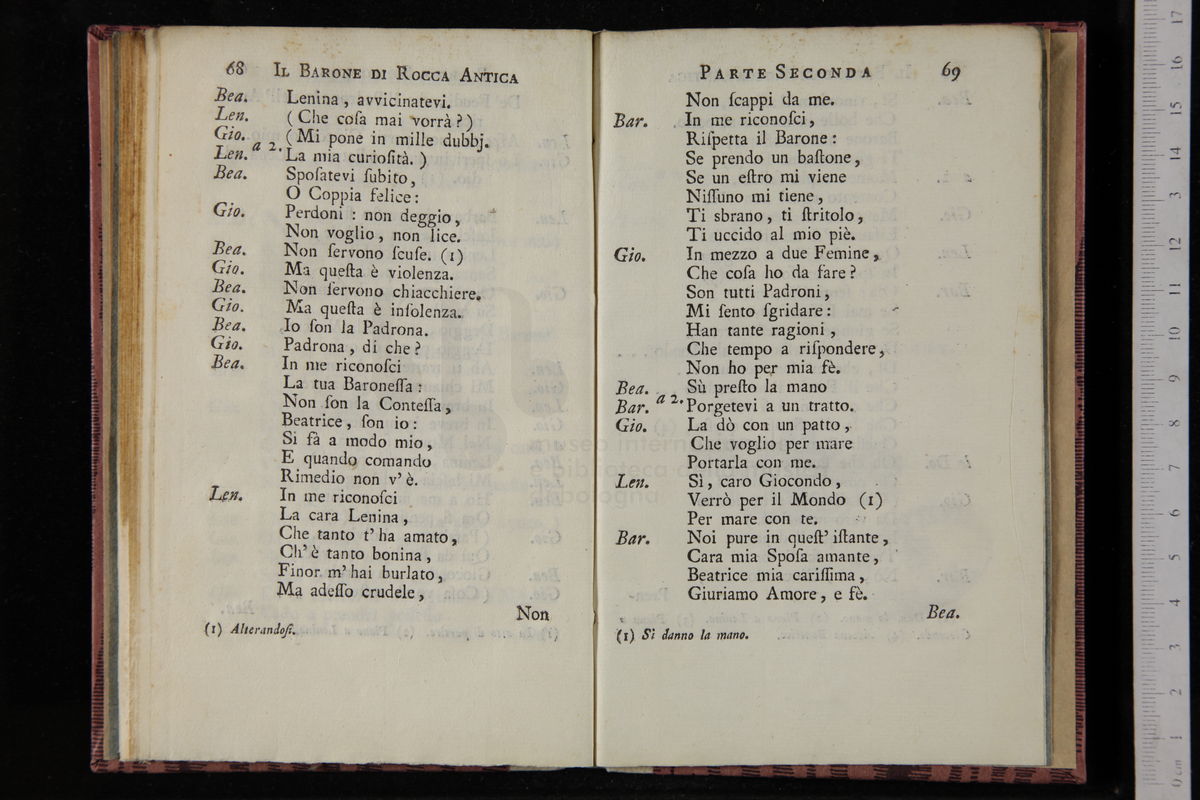 68 IL BARONE DI ROCCA ANTICA
Bea. Lenina, avvicinatevi.
Len. (Che coſa mai vorrà?)
Gio. (Mi pone in mille dubbj.
Len. a 2. La mia curioſità.)
Bea. Spoſatevi ſubito,
O Coppia felice:
Gio. Perdoni: non deggio,
Non voglio, non lice.
Bea. Non ſervono ſcuſe. (1)
Gio. Ma queſta è violenza.
Bea. Non ſervono chiacchiere.
Gio. Ma queſta è inſolenza.
Bea. Io ſon la Padrona.
Gio. Padrona, di che?
Bea. In me riconoſci
La tua Baroneſſa:
Non ſon la Conteſſa,
Beatrice, ſon io:
Si fà a modo mio,
E quando comando
Rimedio non v'è.
Len. In me riconoſci
La cara Lenina,
Che tanto t'ha amato,
Ch'è tanto bonina,
Finor m'hai burlato,
Ma adeſſo crudele,
Non
(1) Alterandoſi.
PARTE SECONDA 69
Non ſcappi da me.
Bar. In me riconoſci,
Riſpetta il Barone:
Se prendo un baſtone,
Se un eſtro mi viene
Niſſuno mi tiene,
Ti sbrano, ti ſtritolo,
Ti uccido al mio piè.
Gio. In mezzo a due Femine,
Che coſa ho da fare?
Son tutti Padroni,
Mi ſento ſgridare:
Han tante ragioni,
Che tempo a riſpondere,
Non ho per mia fè.
Bea. Sù preſto la mano
Bar. a 2. Porgetevi a un tratto.
Gio. La dò con un patto,
Che voglio per mare
Portarla con me.
Len. Sì, caro Giocondo,
Verrò per il Mondo (1)
Per mare con te.
Bar. Noi pure in queſt' iſtante,
Cara mia Spoſa amante,
Beatrice mia cariſſima,
Giuriamo Amore, e fè.
Bea.
(1) Si danno la mano.